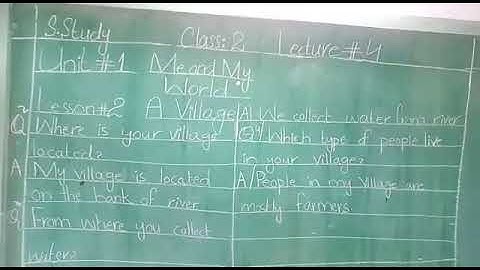 S.Study Class: 2 Lecture #4
Unit #1 Me and My
World.
Lesson#2 A Village
Q Where is your village
located?
A My village is located
on the bank of river
Q From where you collect
water?
A/ We collect water from river
Q4 Which type of people live
in your village?
A/ People in my village are
mostly farmers.